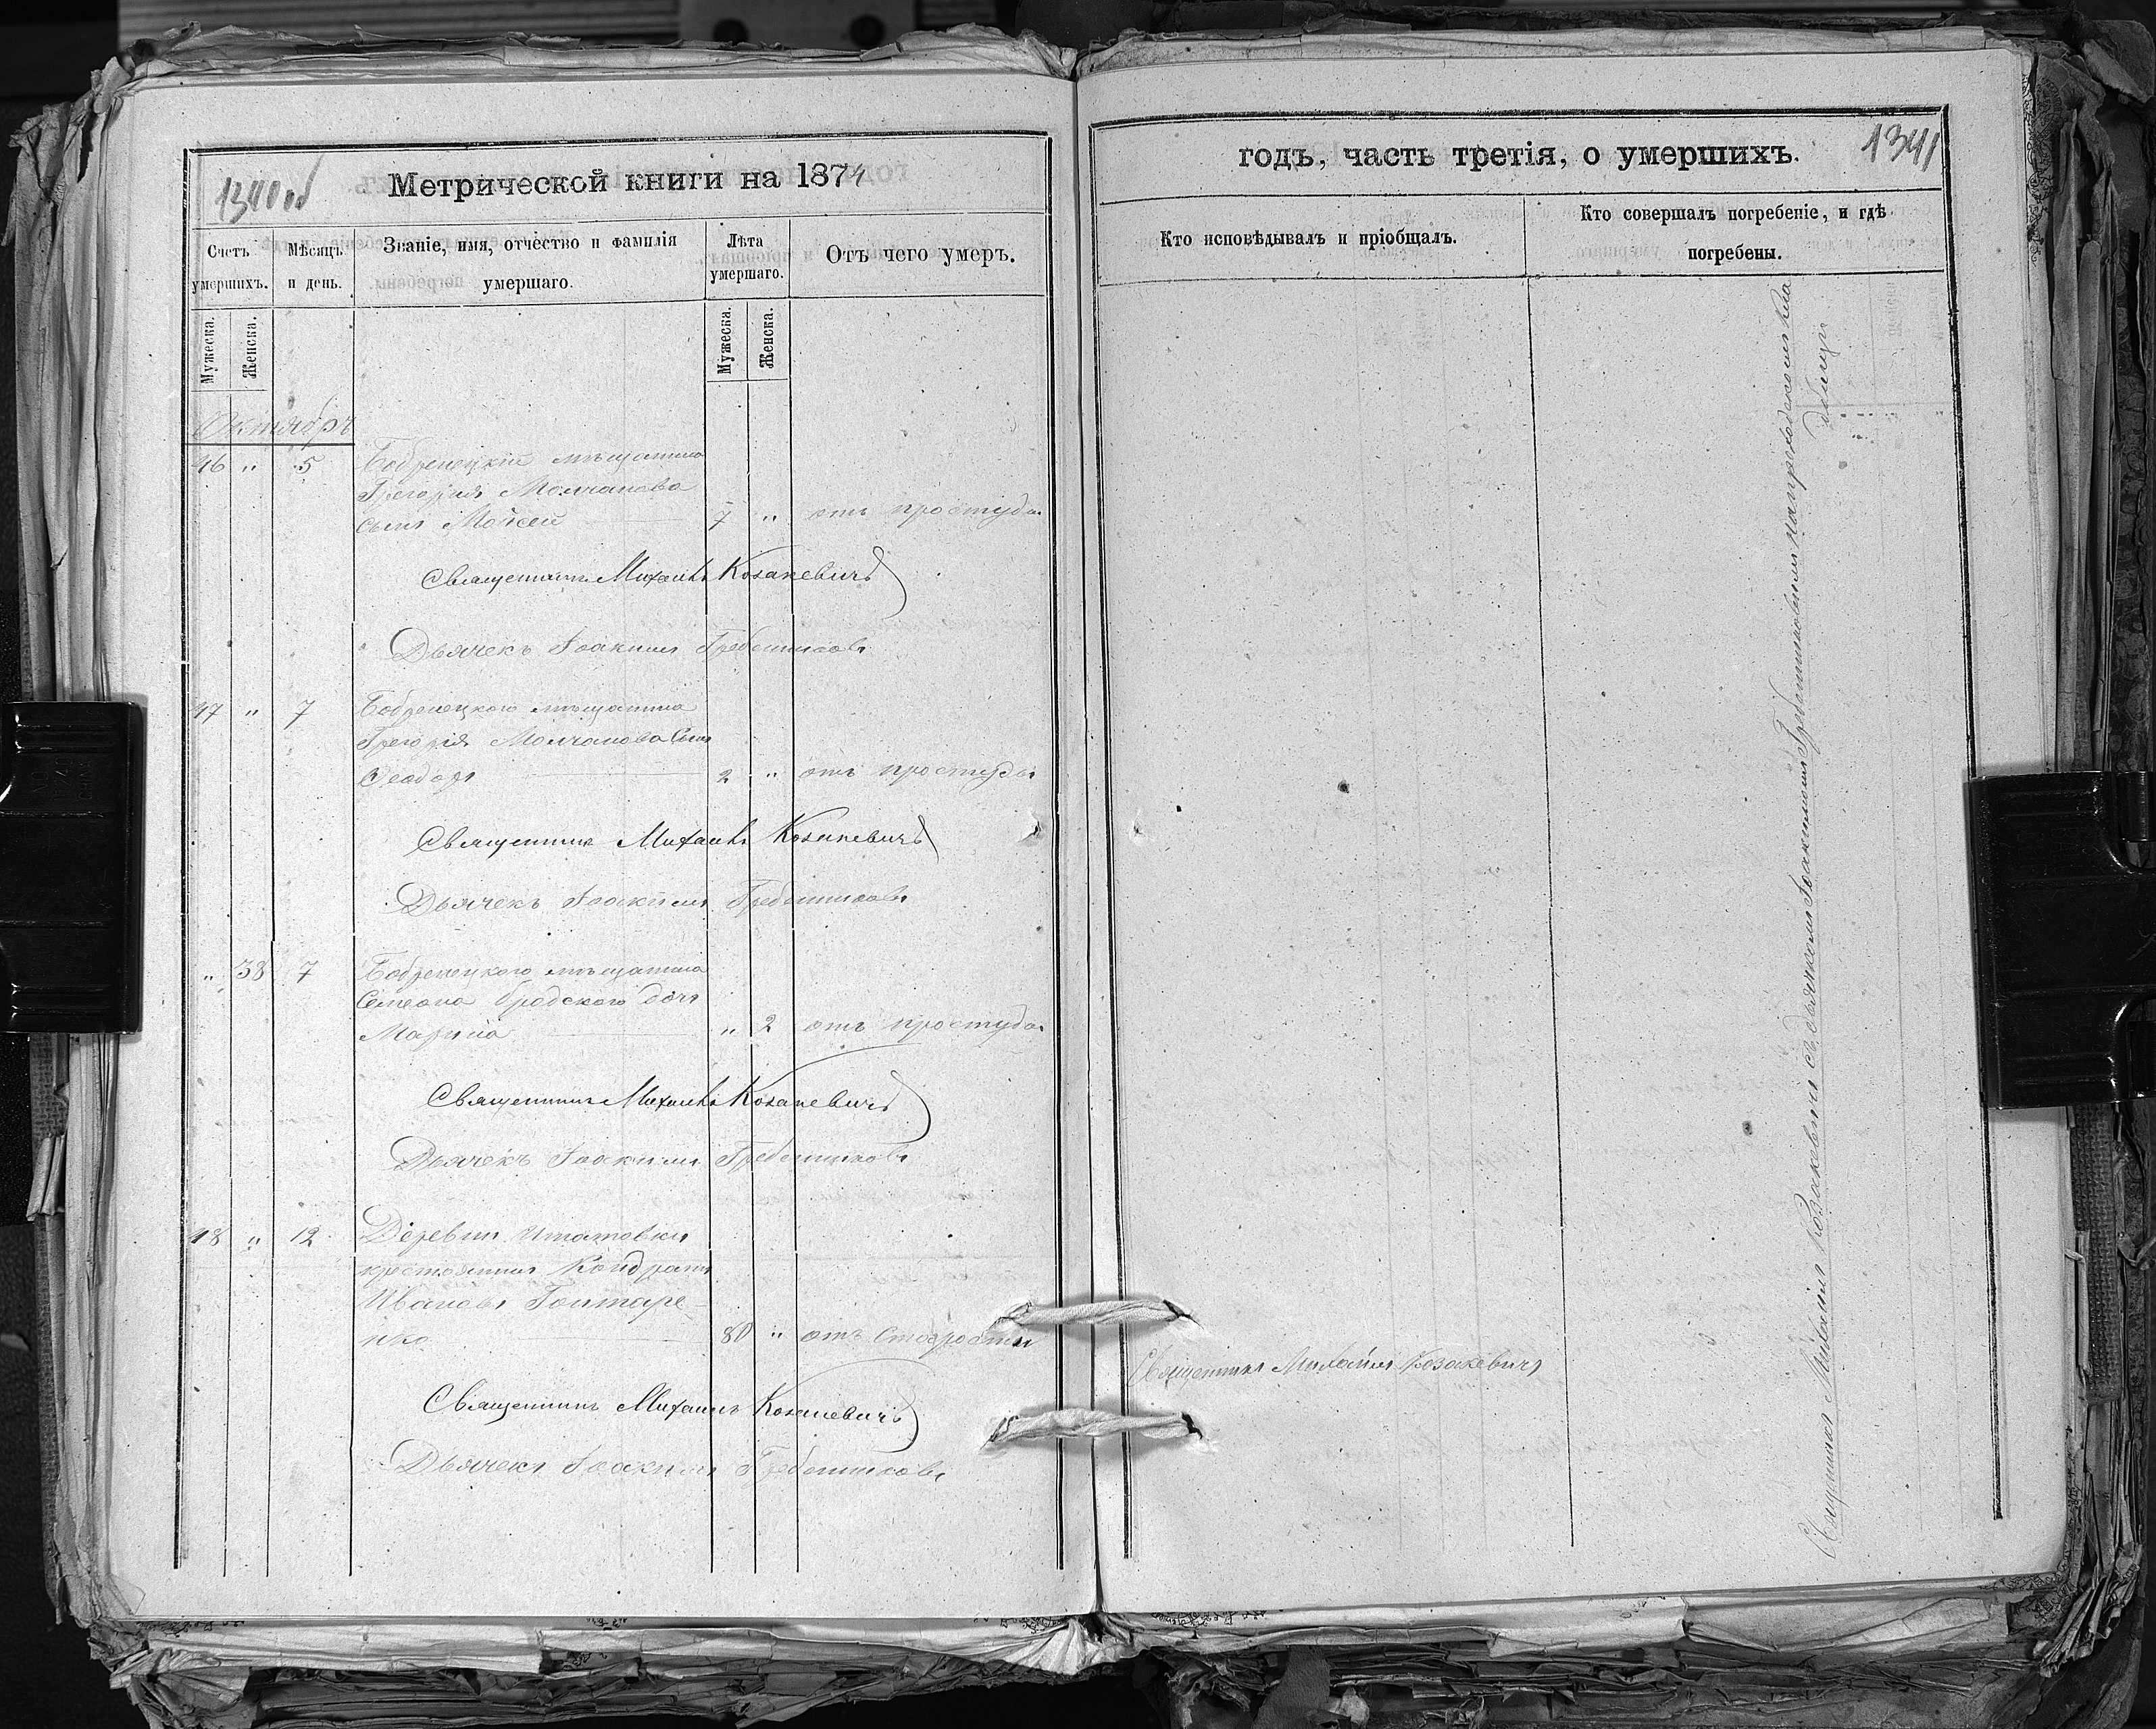 1340 об
Метрической книги на 1874
Счетъ умершихъ.
Мѣсяцъ и день.
Званіе, имя, отчество и фамилія умершаго.
Лѣта умершаго.
Отъ чего умеръ.
Мужеска.
Женска.
Мужеска.
Женска.
Октябрь
46 " 5 Бобренецкій мѣщанина
Грегорія Молчанова
сынъ Мойсей 7 " отъ простуды
Священникъ Михаилъ Козакевичъ
Дьячекъ Іоакимъ Гребенниковъ
47 " 7 Бобренецкого мѣщанина
Грегорія Молчанова Сынъ
Ѳеодоръ 2 " отъ простуды
Священникъ Михаилъ Козакевичъ
Дьячекъ Іоакимъ Гребенниковъ
" 38 7 Бобренецкого мѣщанина
Семеона Бродского дочь
Марина " 2 отъ простуды
Священникъ Михаилъ Козакевичъ
Дьячекъ Іоакимъ Гребенниковъ
48 " 12 Деревни
крестьянинъ Кондратъ
Ивановъ Гонтаре-
нко 80 " отъ Старости
Священникъ Михаилъ Козакевичъ
Дьячекъ Іоакимъ Гребенниковъ
годъ, часть третія, о умершихъ.
1341
Кто исповѣдывалъ и пріобщалъ.
Кто совершалъ погребеніе, и гдѣ погребены.
Священникъ Михаилъ Козакевичъ
Священникъ Михаилъ Козакевичъ съ дьячкомъ Іоакимомъ Гребенниковымъ на приходскомъ кла
дбищѣ